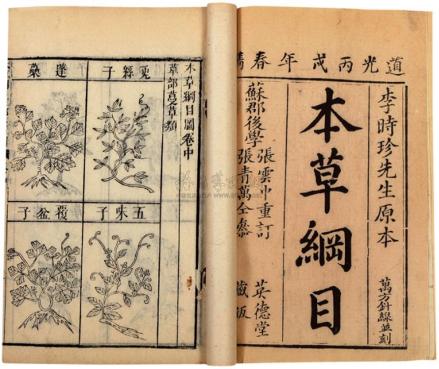 道光丙戌年春鐫
李時珍先生原本
萬方針線並刻
本草綱目
蘇郡後學
張雲中重訂
張青萬仝叅
英德堂
藏板
本草綱目圖卷中
草部蔓草類
五味子
覆盆子